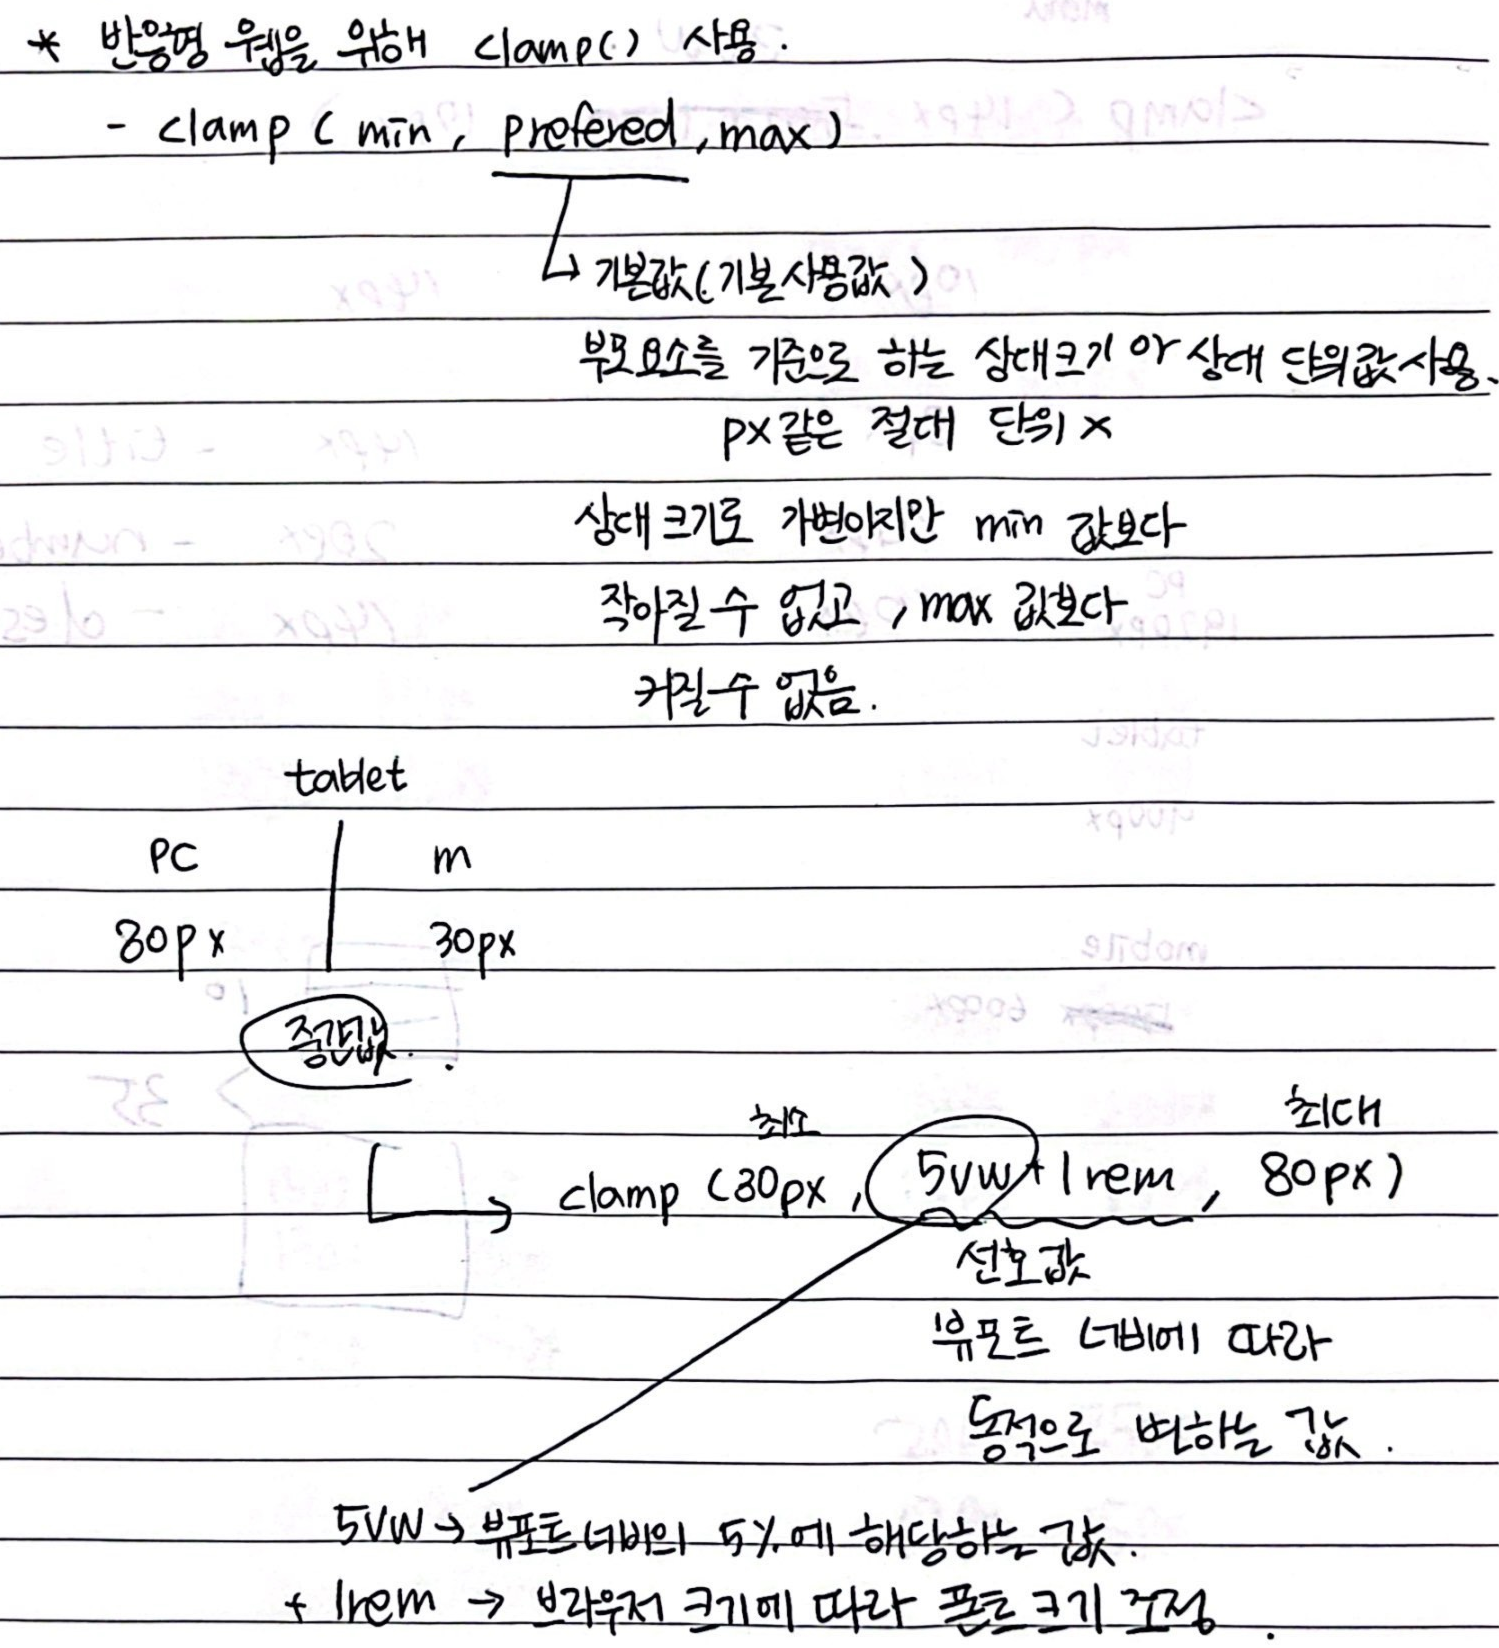 * 반응형 웹을 위해 clamp() 사용.
- clamp ( min, prefered, max)
↳ 기본값(기본사용값)
부모요소를 기준으로 하는 상대크기 or 상대 단위값 사용.
px같은 절대 단위 x
상대크기로 가변이지만 min 값보다
작아질 수 없고, max 값보다
커질 수 없음.
tablet
PC m
80px 30px
중간값.
최소 최대
→ clamp (30px, 5vw + 1rem, 80px)
선호값
뷰포트 너비에 따라
동적으로 변하는 값.
5vw → 뷰포트 너비의 5%에 해당하는 값.
+ 1rem → 브라우저 크기에 따라 폰트 크기 조정.